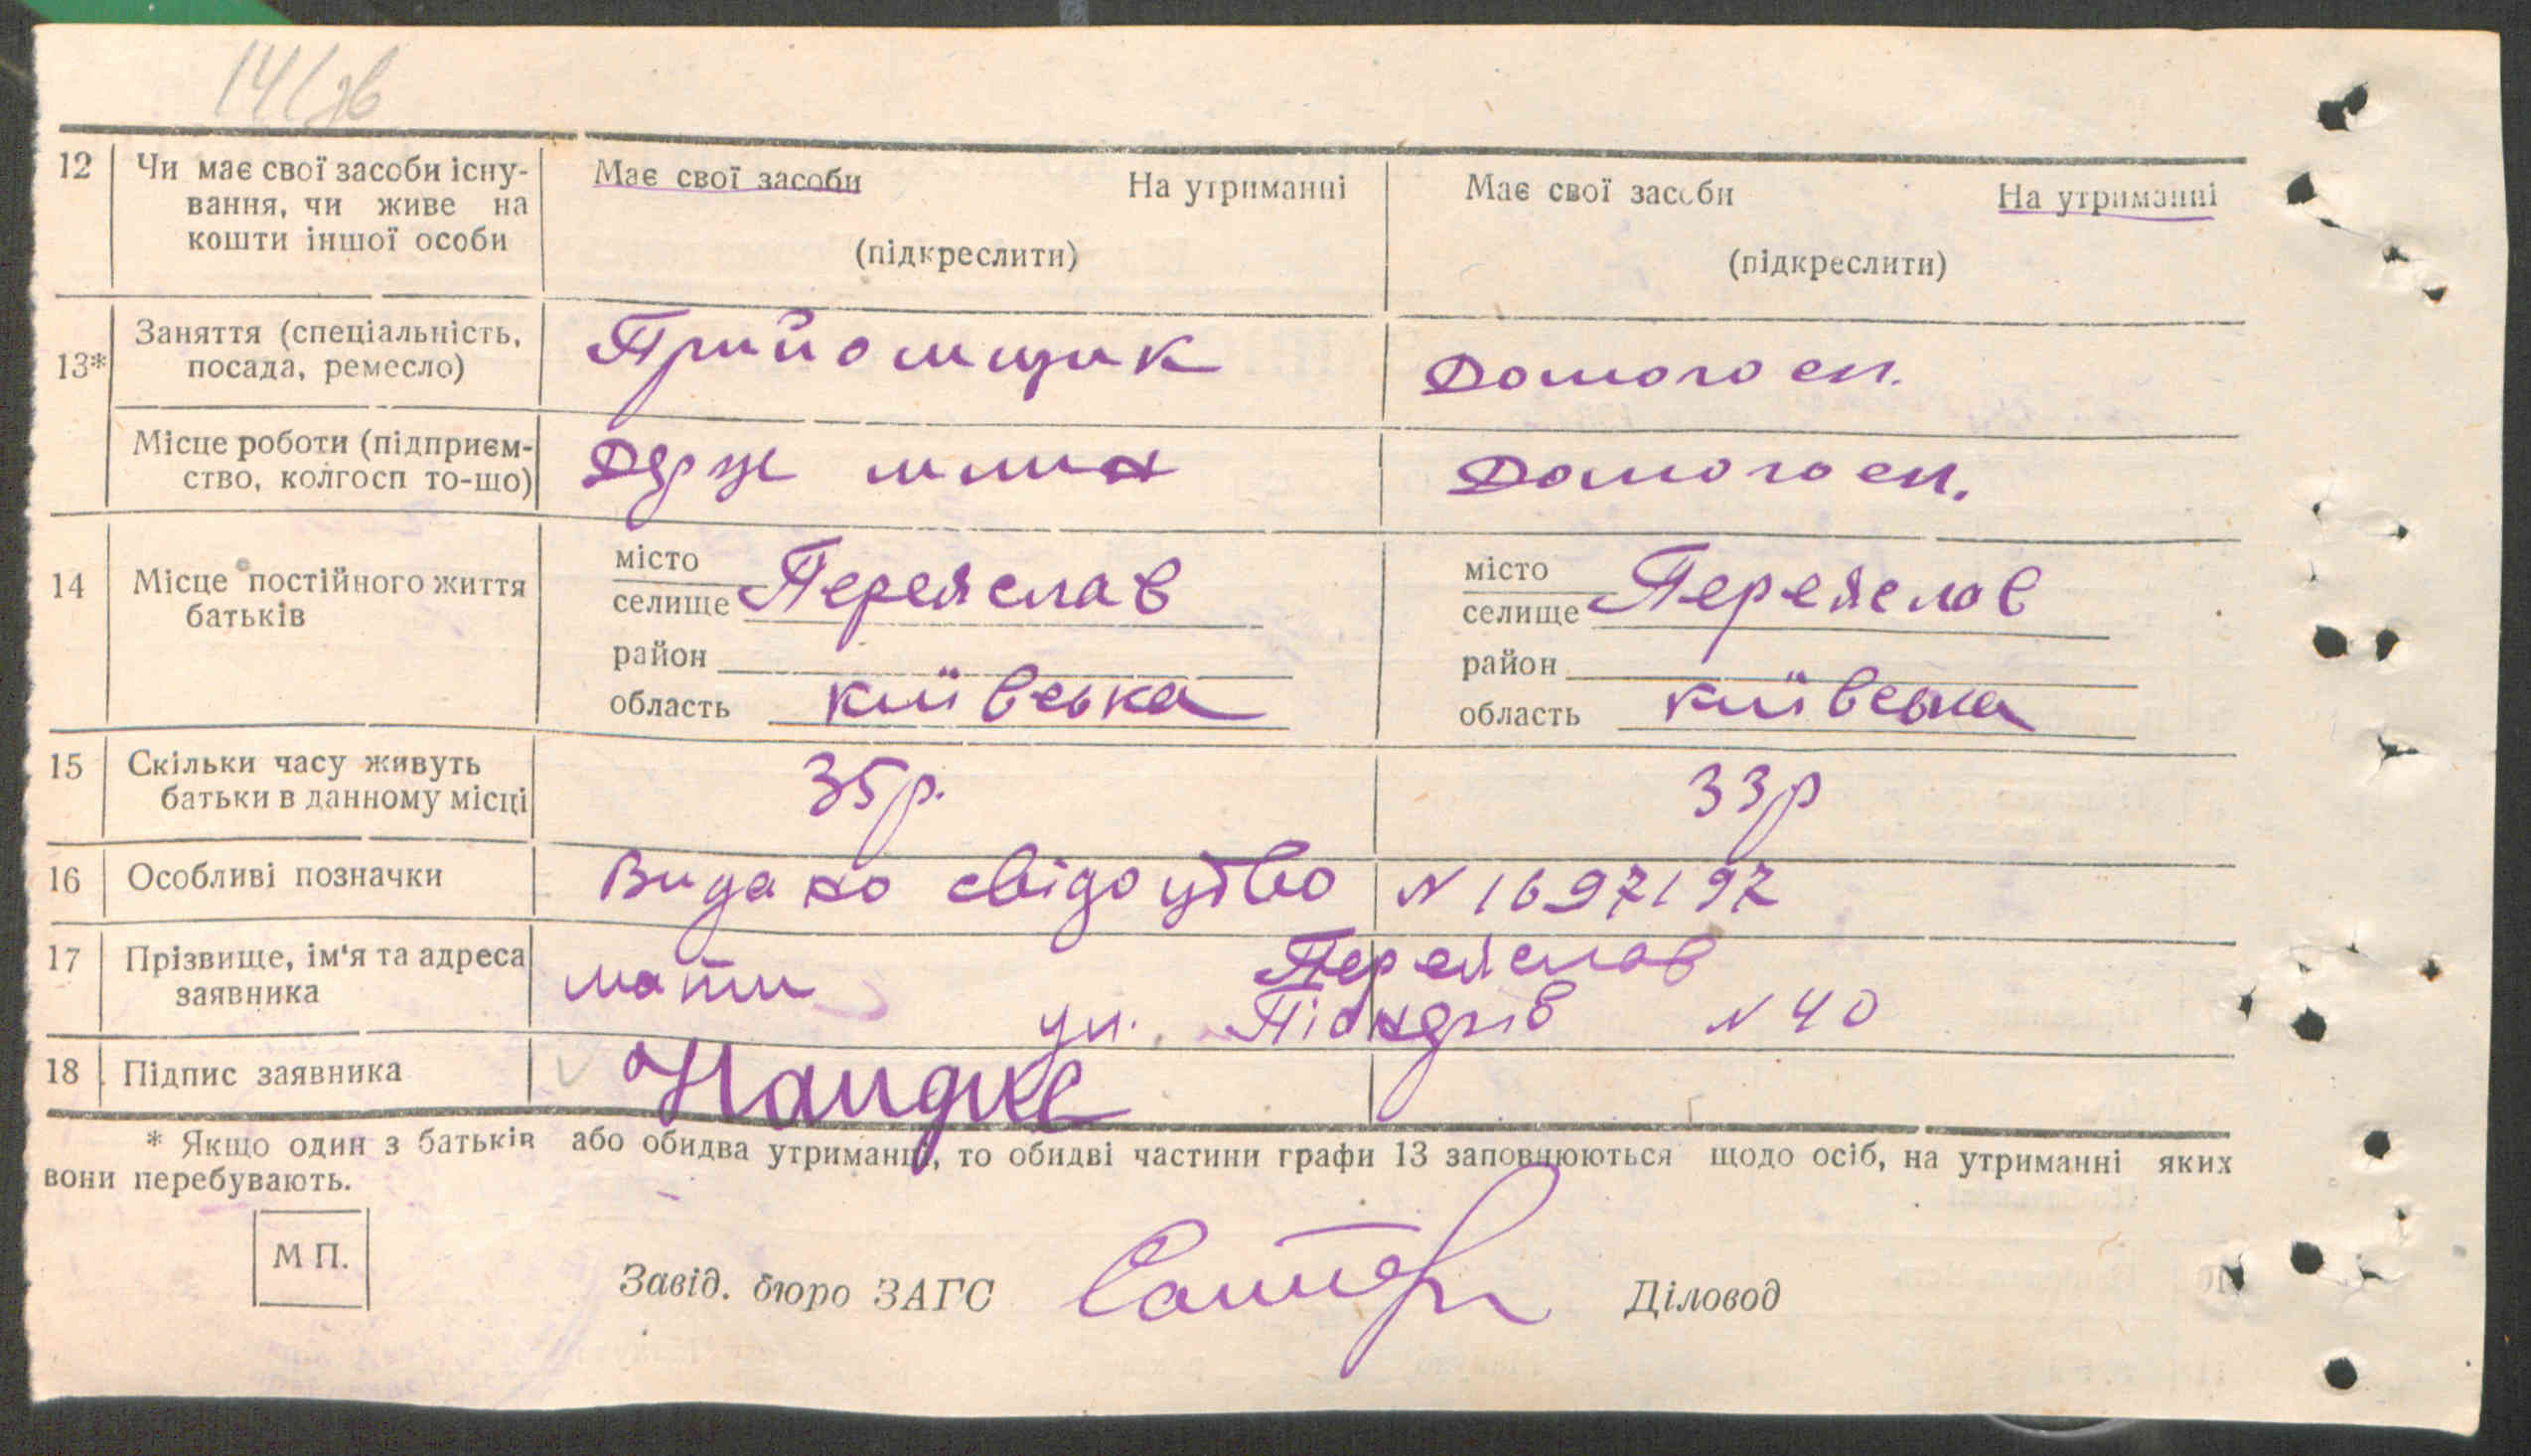 141зв
12 Чи має свої засоби існу- Має свої засоби На утриманні Має свої засоби На утриманні
вання, чи живе на
кошти іншої особи (підкреслити) (підкреслити)
Заняття (спеціальність, Прийомщик Домогосп.
13* посада, ремесло)
Місце роботи (підприєм- Держ млин Домогосп.
ство, колгосп то-що)
місто місто
14 Місце постійного життя селище Переяслав селище Переяслав
батьків
район район
область київська область київська
15 Скільки часу живуть 35р. 33р
батьки в данному місці
16 Особливі позначки Видано свідоцтво N 1697197
17 Прізвище, ім'я та адреса мати Переяслав
заявника ул. N 40
18 Підпис заявника
* Якщо один з батьків або обидва утриманці, то обидві частини графи 13 заповнюються щодо осіб, на утриманні яких
вони перебувають.
М П.
Завід. бюро ЗАГС Діловод